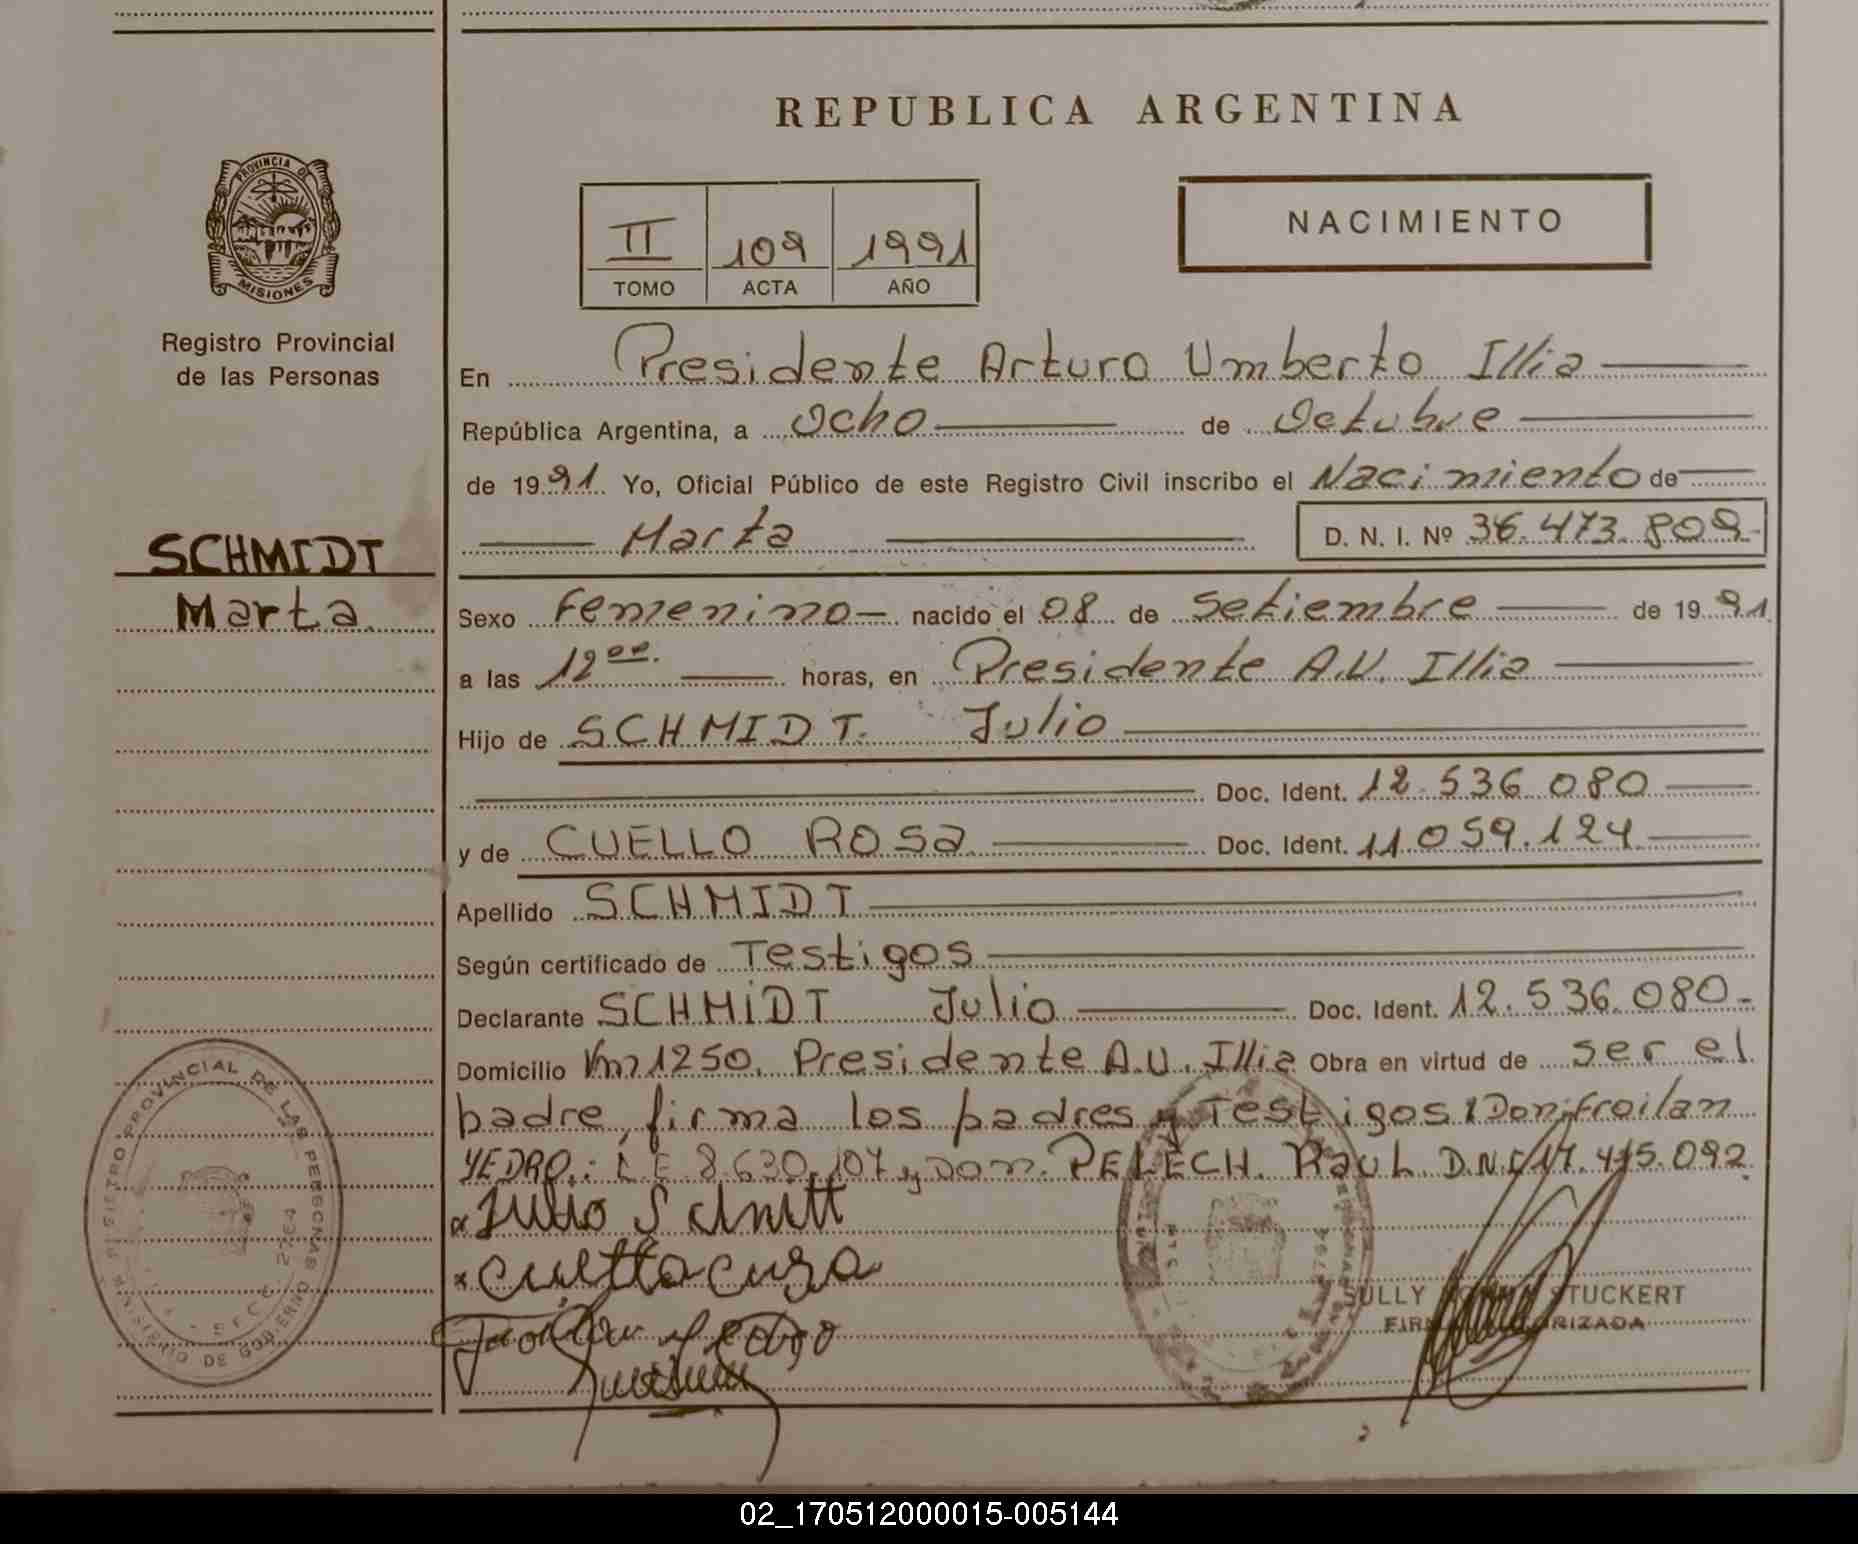 REPUBLICA ARGENTINA
PROVINCIA DE
MISIONES
Registro Provincial
de las Personas
SCHMIDT
Marta
II 109 1991
TOMO ACTA AÑO
NACIMIENTO
En Presidente Arturo Umberto Illia
República Argentina, a Ocho de Octubre
de 1991 Yo, Oficial Público de este Registro Civil inscribo el Nacimiento de
Marta D. N. I. Nº 36.473.809
Sexo Femenino nacido el 08 de Setiembre de 1991
a las 12 00. horas, en Presidente A.U. Illia
Hijo de SCHMIDT. Julio
Doc. Ident. 12.536.080
y de CUELLO ROSA Doc. Ident. 11.059.124
Apellido SCHMIDT
Según certificado de Testigos
Declarante SCHMIDT Julio Doc. Ident. 12.536.080
Domicilio Km 1250. Presidente A.U. Illia Obra en virtud de ser el
padre, firma los padres y Testigos Don Froilan
YEDRO: L E 8.630.107 y Don. PELECH. Raul D.N.I 17.415.092
Julio Schmitt
REGISTRO PROVINCIAL DE LAS PERSONAS
MINISTERIO DE GOBIERNO
2764
STUCKERT
02_170512000015-005144